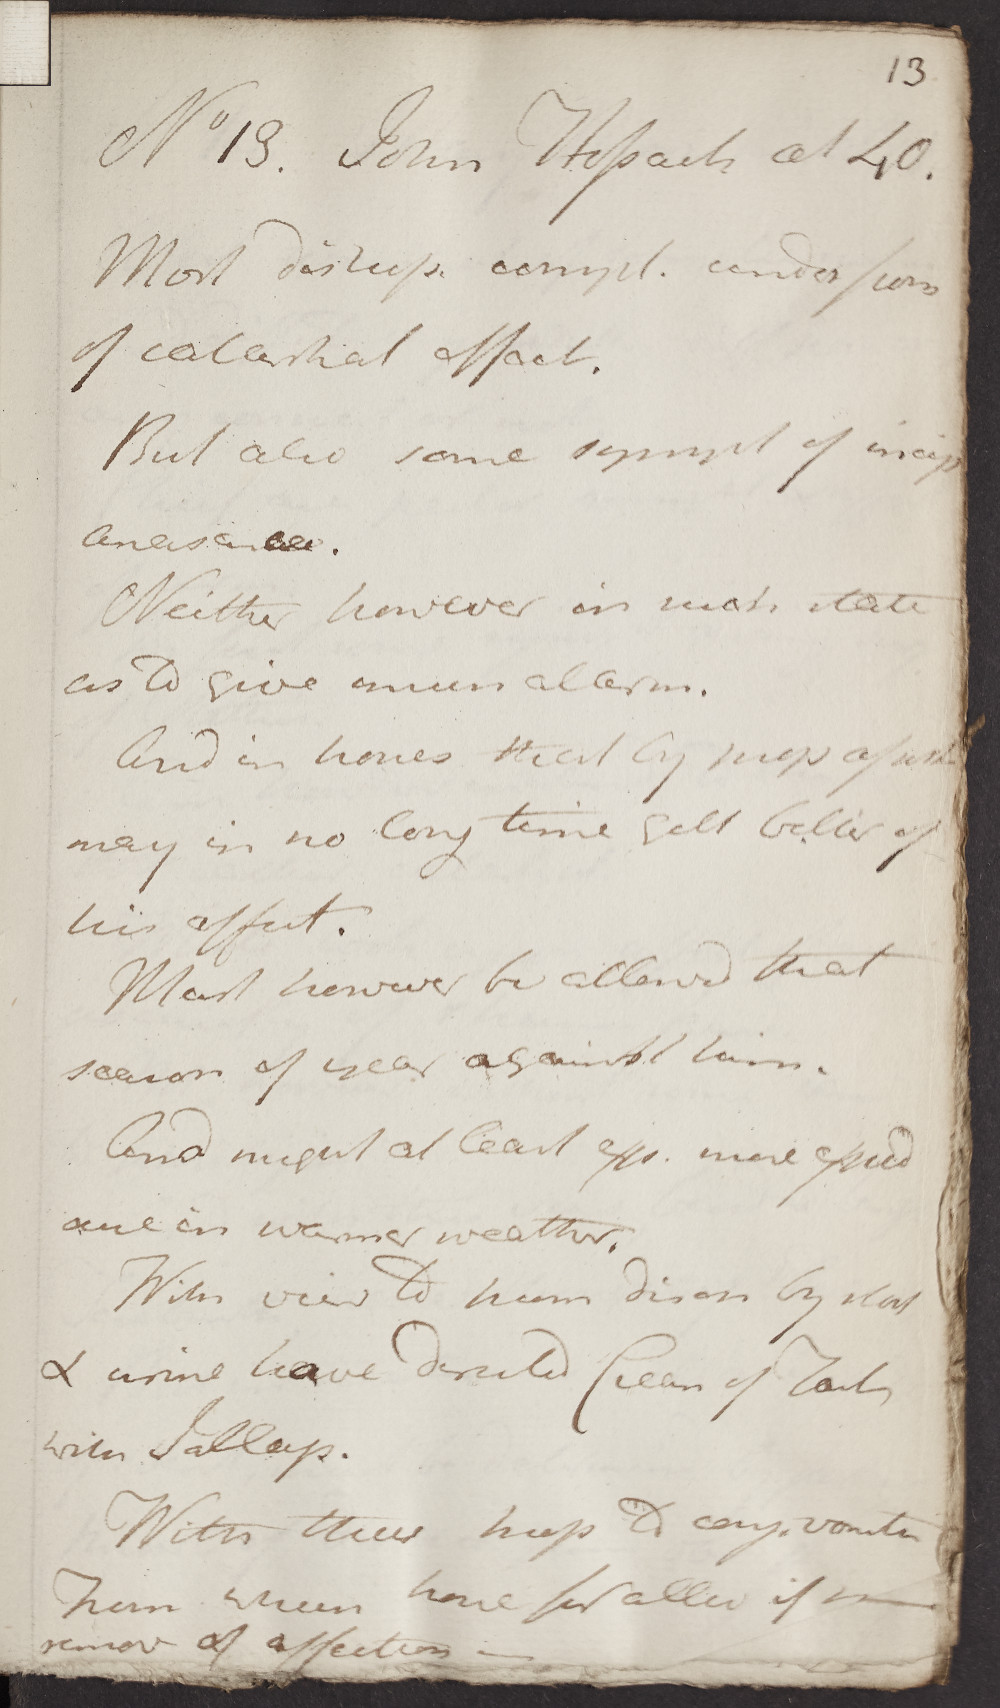 13
No 13. John Hossack at 40.
Most distress. compl. under form
of catarrhal affect.
But also some sympt of incip
anasarca.
Neither however in such state
as to give much allarm.
And in hopes that by
may in no long time gett better of
his affect.
Must however be allowed that
season of year against him.
And might at least exp. more speed
cure in warmer weather.
With view to disch by stool
& urine have directed Cream of Tart
with Jallap.
With these hope to
when have
remov of affection —